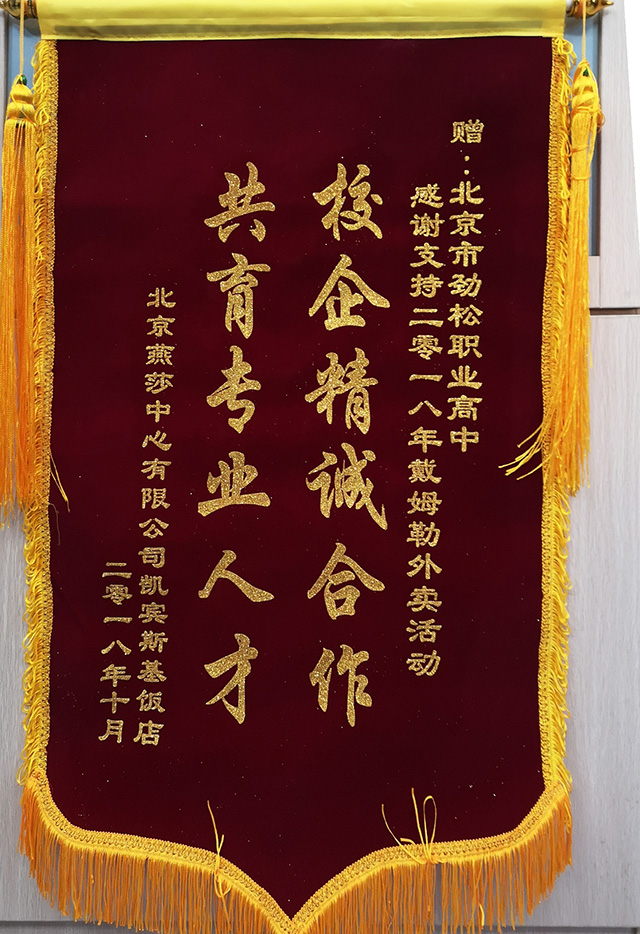 赠：北京市劲松职业高中
感谢支持二零一八年戴姆勒外卖活动
校企精诚合作
共育专业人才
北京燕莎中心有限公司凯宾斯基饭店
二零一八年十月